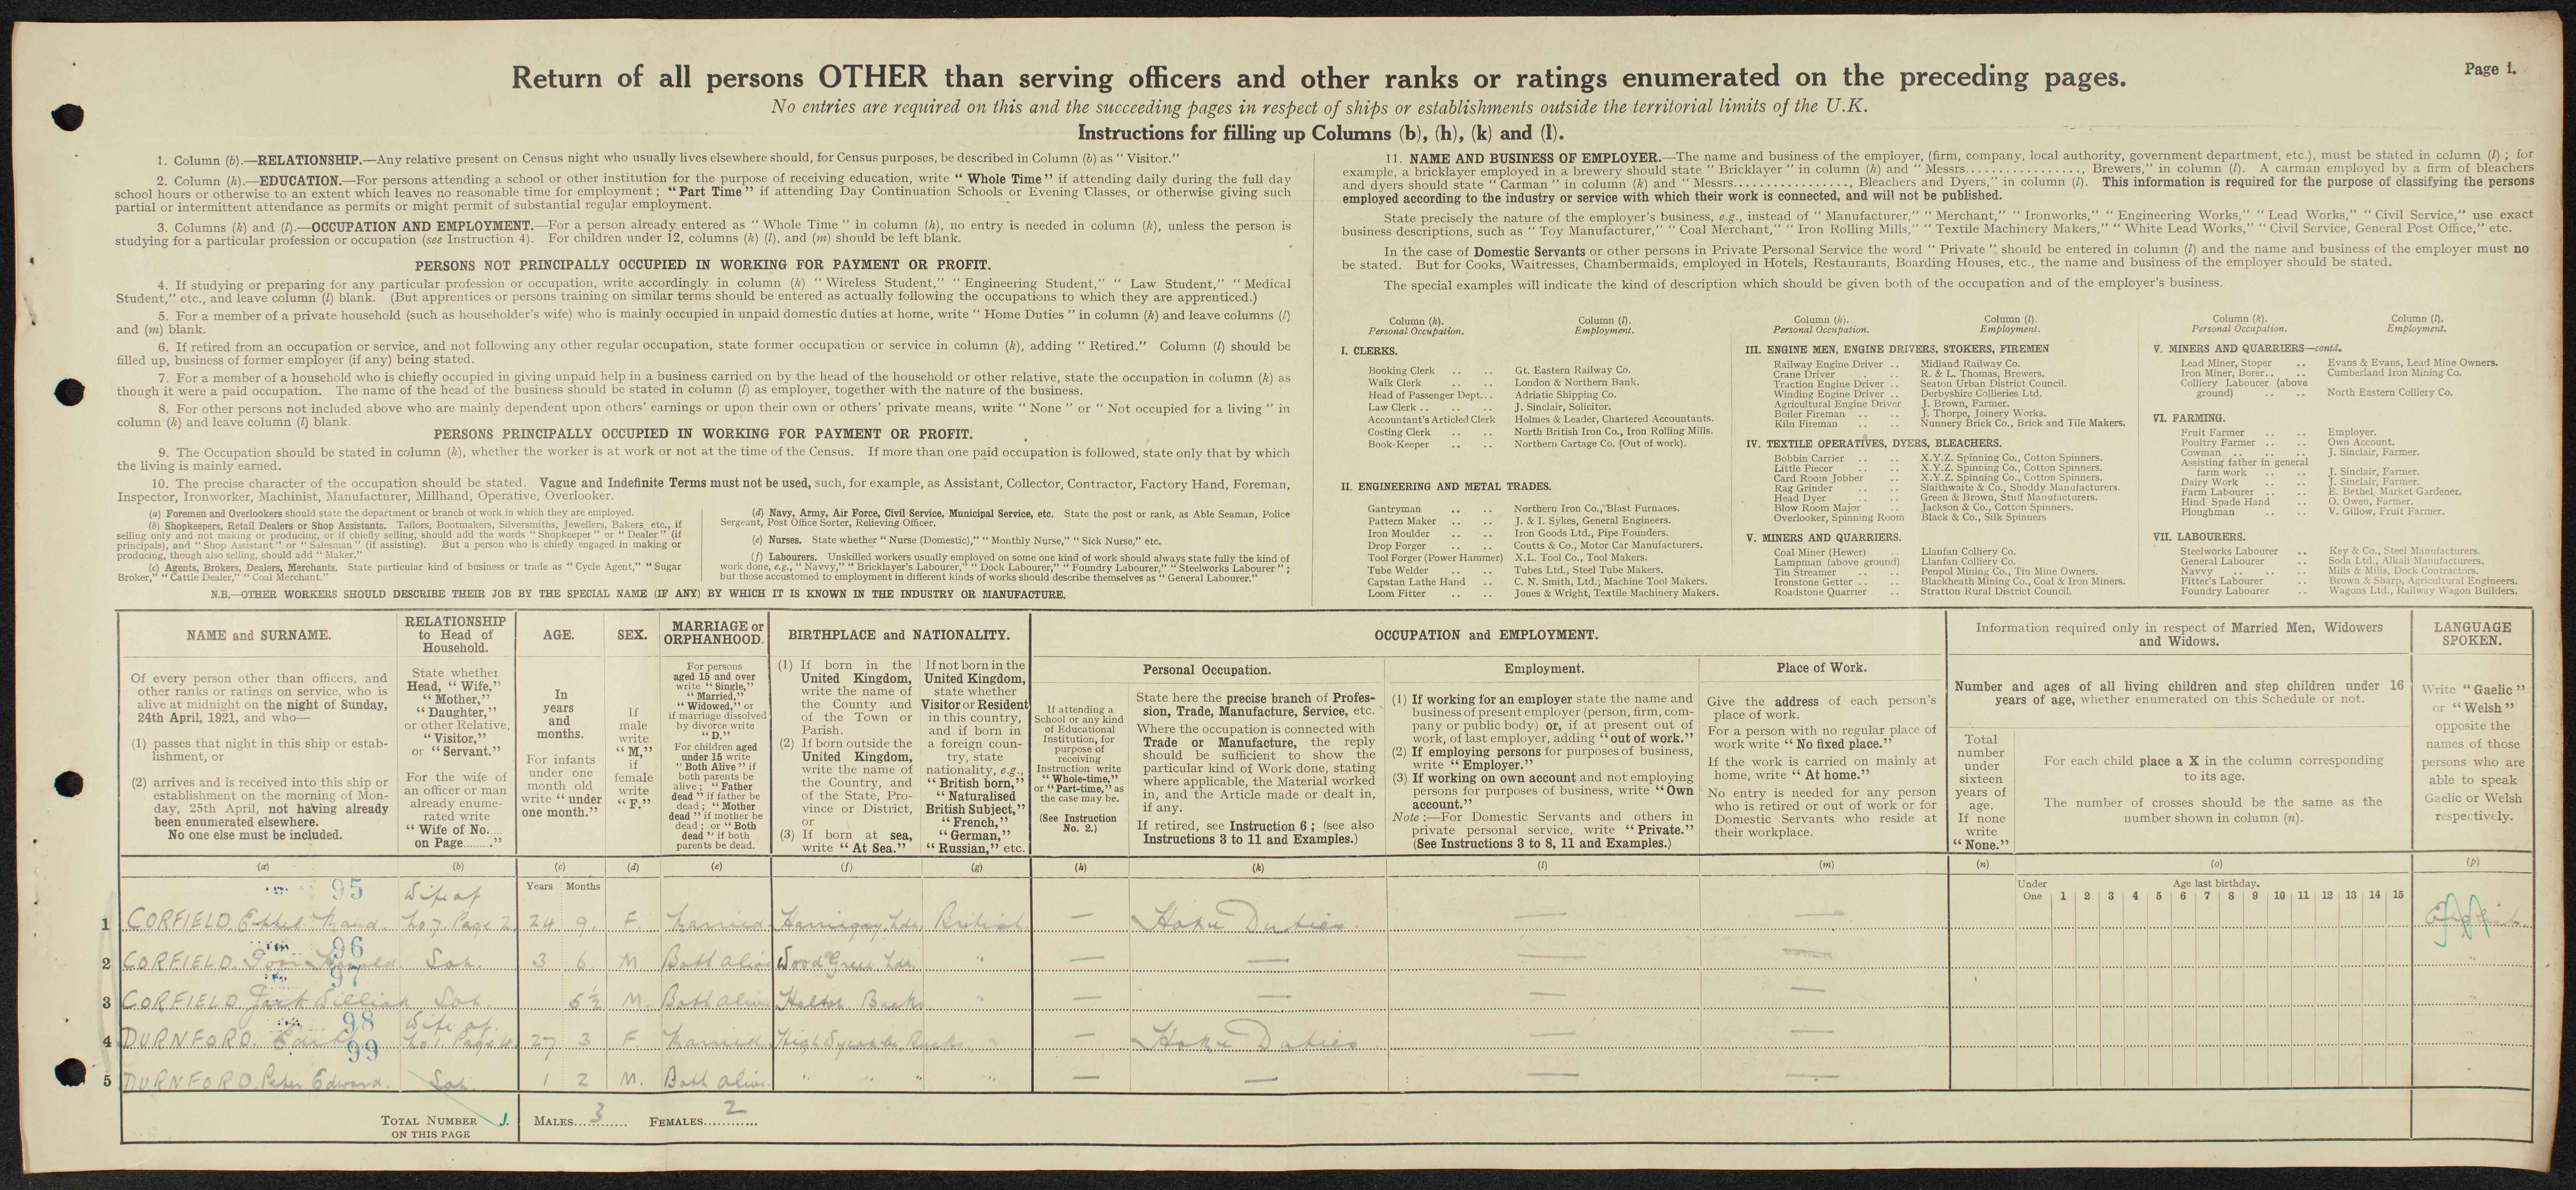 Page 1.
Return of all persons OTHER than serving officers and other ranks or ratings enumerated on the preceding pages.
No entries are required on this and the succeeding pages in respect of ships or establishments outside the territorial limits of the U.K.
Instructions for filling up Columns (b), (h), (k) and (l).
1. Column (b).—RELATIONSHIP.—Any relative present on Census night who usually lives elsewhere should, for Census purposes, be described in Column (b) as "Visitor."
2. Column (h).—EDUCATION.—For persons attending a school or other institution for the purpose of receiving education, write "Whole Time" if attending daily during the full day
school hours or otherwise to an extent which leaves no reasonable time for employment; "Part Time" if attending Day Continuation Schools or Evening Classes, or otherwise giving such
partial or intermittent attendance as permits or might permit of substantial regular employment.
3. Columns (k) and (l).—OCCUPATION AND EMPLOYMENT.—For a person already entered as "Whole Time" in column (h), no entry is needed in column (k), unless the person is
studying for a particular profession or occupation (see Instruction 4). For children under 12, columns (k) (l), and (m) should be left blank.
PERSONS NOT PRINCIPALLY OCCUPIED IN WORKING FOR PAYMENT OR PROFIT.
4. If studying or preparing for any particular profession or occupation, write accordingly in column (k) "Wireless Student," "Engineering Student," "Law Student," "Medical
Student," etc., and leave column (l) blank. (But apprentices or persons training on similar terms should be entered as actually following the occupations to which they are apprenticed.)
5. For a member of a private household (such as householder's wife) who is mainly occupied in unpaid domestic duties at home, write "Home Duties" in column (k) and leave columns (l)
and (m) blank.
6. If retired from an occupation or service, and not following any other regular occupation, state former occupation or service in column (k), adding "Retired." Column (l) should be
filled up, business of former employer (if any) being stated.
7. For a member of a household who is chiefly occupied in giving unpaid help in a business carried on by the head of the household or other relative, state the occupation in column (k) as
though it were a paid occupation. The name of the head of the business should be stated in column (l) as employer, together with the nature of the business.
8. For other persons not included above who are mainly dependent upon others' earnings or upon their own or others' private means, write "None" or "Not occupied for a living" in
column (k) and leave column (l) blank.
PERSONS PRINCIPALLY OCCUPIED IN WORKING FOR PAYMENT OR PROFIT.
9. The Occupation should be stated in column (k), whether the worker is at work or not at the time of the Census. If more than one paid occupation is followed, state only that by which
the living is mainly earned.
10. The precise character of the occupation should be stated. Vague and Indefinite Terms must not be used, such, for example, as Assistant, Collector, Contractor, Factory Hand, Foreman,
Inspector, Ironworker, Machinist, Manufacturer, Millhand, Operative, Overlooker.
(a) Foremen and Overlookers should state the department or branch of work in which they are employed.
(b) Shopkeepers, Retail Dealers or Shop Assistants. Tailors, Bootmakers, Silversmiths, Jewellers, Bakers, etc., if
selling only and not making or producing, or if chiefly selling, should add the words "Shopkeeper" or "Dealer" (if
principals), and "Shop Assistant" or "Salesman" (if assisting). But a person who is chiefly engaged in making or
producing, though also selling, should add "Maker."
(c) Agents, Brokers, Dealers, Merchants. State particular kind of business or trade as "Cycle Agent," "Sugar
Broker," "Cattle Dealer," "Coal Merchant."
(d) Navy, Army, Air Force, Civil Service, Municipal Service, etc. State the post or rank, as Able Seaman, Police
Sergeant, Post Office Sorter, Relieving Officer.
(e) Nurses. State whether "Nurse (Domestic)," "Monthly Nurse," "Sick Nurse," etc.
(f) Labourers. Unskilled workers usually employed on some one kind of work should always state fully the kind of
work done, e.g., "Navvy," "Bricklayer's Labourer," "Dock Labourer," "Foundry Labourer," "Steelworks Labourer";
but those accustomed to employment in different kinds of works should describe themselves as "General Labourer."
N.B.—OTHER WORKERS SHOULD DESCRIBE THEIR JOB BY THE SPECIAL NAME (IF ANY) BY WHICH IT IS KNOWN IN THE INDUSTRY OR MANUFACTURE.
11. NAME AND BUSINESS OF EMPLOYER.—The name and business of the employer, (firm, company, local authority, government department, etc.), must be stated in column (l); for
example, a bricklayer employed in a brewery should state "Bricklayer" in column (k) and "Messrs................, Brewers," in column (l). A carman employed by a firm of bleachers
and dyers should state "Carman" in column (k) and "Messrs................, Bleachers and Dyers," in column (l). This information is required for the purpose of classifying the persons
employed according to the industry or service with which their work is connected, and will not be published.
State precisely the nature of the employer's business, e.g., instead of "Manufacturer," "Merchant," "Ironworks," "Engineering Works," "Lead Works," "Civil Service," use exact
business descriptions, such as "Toy Manufacturer," "Coal Merchant," "Iron Rolling Mills," "Textile Machinery Makers," "White Lead Works," "Civil Service, General Post Office," etc.
In the case of Domestic Servants or other persons in Private Personal Service the word "Private" should be entered in column (l) and the name and business of the employer must no
be stated. But for Cooks, Waitresses, Chambermaids, employed in Hotels, Restaurants, Boarding Houses, etc., the name and business of the employer should be stated.
The special examples will indicate the kind of description which should be given both of the occupation and of the employer's business.
Column (k). Personal Occupation. Column (l). Employment.
I. CLERKS.
Booking Clerk .. .. Gt. Eastern Railway Co.
Walk Clerk .. .. London & Northern Bank.
Head of Passenger Dept... Adriatic Shipping Co.
Law Clerk .. .. .. J. Sinclair, Solicitor.
Accountant's Articled Clerk Holmes & Leader, Chartered Accountants.
Costing Clerk .. .. North British Iron Co., Iron Rolling Mills.
Book-Keeper .. .. Northern Cartage Co. (Out of work).
II. ENGINEERING AND METAL TRADES.
Gantryman .. .. Northern Iron Co., Blast Furnaces.
Pattern Maker .. .. J. & I. Sykes, General Engineers.
Iron Moulder .. .. Iron Goods Ltd., Pipe Founders.
Drop Forger .. .. Coutts & Co., Motor Car Manufacturers.
Tool Forger (Power Hammer) X.L. Tool Co., Tool Makers.
Tube Welder .. .. Tubes Ltd., Steel Tube Makers.
Capstan Lathe Hand .. C. N. Smith, Ltd., Machine Tool Makers.
Loom Fitter .. .. Jones & Wright, Textile Machinery Makers.
Column (k). Personal Occupation. Column (l). Employment.
III. ENGINE MEN, ENGINE DRIVERS, STOKERS, FIREMEN
Railway Engine Driver .. Midland Railway Co.
Crane Driver .. R. & L. Thomas, Brewers.
Traction Engine Driver .. Seaton Urban District Council.
Winding Engine Driver .. Derbyshire Collieries Ltd.
Agricultural Engine Driver J. Brown, Farmer.
Boiler Fireman .. .. J. Thorpe, Joinery Works.
Kiln Fireman .. .. Nunnery Brick Co., Brick and Tile Makers.
IV. TEXTILE OPERATIVES, DYERS, BLEACHERS.
Bobbin Carrier .. .. X.Y.Z. Spinning Co., Cotton Spinners.
Little Piecer .. .. X.Y.Z. Spinning Co., Cotton Spinners.
Card Room Jobber .. X.Y.Z. Spinning Co., Cotton Spinners.
Rag Grinder .. .. Slaithwaite & Co., Shoddy Manufacturers.
Head Dyer .. .. Green & Brown, Stuff Manufacturers.
Blow Room Major .. Jackson & Co., Cotton Spinners.
Overlooker, Spinning Room Black & Co., Silk Spinners
V. MINERS AND QUARRIERS.
Coal Miner (Hewer) .. Llanfan Colliery Co.
Lampman (above ground) Llanfan Colliery Co.
Tin Streamer .. .. Penpol Mining Co., Tin Mine Owners.
Ironstone Getter .. .. Blackheath Mining Co., Coal & Iron Miners.
Roadstone Quarrier .. Stratton Rural District Council.
Column (k). Personal Occupation. Column (l). Employment.
V. MINERS AND QUARRIERS—contd.
Lead Miner, Stoper .. Evans & Evans, Lead Mine Owners.
Iron Miner, Borer.. .. Cumberland Iron Mining Co.
Colliery Labourer (above
ground) .. .. North Eastern Colliery Co.
VI. FARMING.
Fruit Farmer .. .. Employer.
Poultry Farmer .. .. Own Account.
Cowman .. .. .. J. Sinclair, Farmer.
Assisting father in general
farm work .. .. J. Sinclair, Farmer.
Dairy Work .. .. J. Sinclair, Farmer.
Farm Labourer .. .. E. Bethel, Market Gardener.
Hind Spade Hand .. O. Owen, Farmer.
Ploughman .. .. V. Gillow, Fruit Farmer.
VII. LABOURERS.
Steelworks Labourer .. Key & Co., Steel Manufacturers.
General Labourer .. Soda Ltd., Alkali Manufacturers.
Navvy .. .. .. Mills & Mills, Dock Contractors.
Fitter's Labourer .. Brown & Sharp, Agricultural Engineers.
Foundry Labourer .. Wagons Ltd., Railway Wagon Builders.
NAME and SURNAME.
Of every person other than officers, and
other ranks or ratings on service, who is
alive at midnight on the night of Sunday,
24th April, 1921, and who—
(1) passes that night in this ship or estab-
lishment, or
(2) arrives and is received into this ship or
establishment on the morning of Mon-
day, 25th April, not having already
been enumerated elsewhere.
No one else must be included.
(a)
RELATIONSHIP
to Head of
Household.
State whether
Head, "Wife,"
"Mother,"
"Daughter,"
or other Relative,
"Visitor,"
or "Servant."
For the wife of
an officer or man
already enume-
rated write
"Wife of No....
on Page........"
(b)
AGE.
In
years
and
months.
For infants
under one
month old
write "under
one month."
(c)
SEX.
If
male
write
"M,"
if
female
write
"F."
(d)
MARRIAGE or
ORPHANHOOD.
For persons
aged 15 and over
write "Single,"
"Married,"
"Widowed," or
if marriage dissolved
by divorce write
"D."
For children aged
under 15 write
"Both Alive" if
both parents be
alive; "Father
dead" if father be
dead; "Mother
dead" if mother be
dead; or "Both
dead" if both
parents be dead.
(e)
BIRTHPLACE and NATIONALITY.
(1) If born in the
United Kingdom,
write the name of
the County and
of the Town or
Parish.
(2) If born outside the
United Kingdom,
write the name of
the Country, and
of the State, Pro-
vince or District,
or
(3) If born at sea,
write "At Sea."
(f)
If not born in the
United Kingdom,
state whether
Visitor or Resident
in this country,
and if born in
a foreign coun-
try, state
nationality, e.g.,
"British born,"
"Naturalised
British Subject,"
"French,"
"German,"
"Russian," etc.
(g)
OCCUPATION and EMPLOYMENT.
Personal Occupation.
If attending a
School or any kind
of Educational
Institution, for
purpose of
receiving
Instruction write
"Whole-time,"
or "Part-time," as
the case may be.
(See Instruction
No. 2.)
(h)
State here the precise branch of Profes-
sion, Trade, Manufacture, Service, etc.
Where the occupation is connected with
Trade or Manufacture, the reply
should be sufficient to show the
particular kind of Work done, stating
where applicable, the Material worked
in, and the Article made or dealt in,
if any.
If retired, see Instruction 6; (see also
Instructions 3 to 11 and Examples.)
(k)
Employment.
(1) If working for an employer state the name and
business of present employer (person, firm, com-
pany or public body) or, if at present out of
work, of last employer, adding "out of work."
(2) If employing persons for purposes of business,
write "Employer."
(3) If working on own account and not employing
persons for purposes of business, write "Own
account."
Note:—For Domestic Servants and others in
private personal service, write "Private."
(See Instructions 3 to 8, 11 and Examples.)
(l)
Place of Work.
Give the address of each person's
place of work.
For a person with no regular place of
work write "No fixed place."
If the work is carried on mainly at
home, write "At home."
No entry is needed for any person
who is retired or out of work or for
Domestic Servants who reside at
their workplace.
(m)
Information required only in respect of Married Men, Widowers
and Widows.
Number and ages of all living children and step children under 16
years of age, whether enumerated on this Schedule or not.
Total
number
under
sixteen
years of
age.
If none
write
"None."
(n)
For each child place a X in the column corresponding
to its age.
The number of crosses should be the same as the
number shown in column (n).
(o)
LANGUAGE
SPOKEN.
Write "Gaelic"
or "Welsh"
opposite the
names of those
persons who are
able to speak
Gaelic or Welsh
respectively.
(p)
Years Months
Under One Age last birthday. 1 2 3 4 5 6 7 8 9 10 11 12 13 14 15
95
Wife of
1 CORFIELD. Ethel Maud. No 7. Page 2. 24 9. F. Married. Harringay, Ldn. British — Home Duties. — — English
96
2 CORFIELD. Son. 3 6 M. Both alive Wood Green. Ldn. " — — — — "
97
3 CORFIELD. Jack William Son. 5½ M. Both alive Halton. Bucks " — — — — "
98
Wife of.
4 DURNFORD. Edith No 1. Page 27 3 F. Married. High Wycombe, Bucks. " — Home Duties — — "
99
5 DURNFORD. Peter Edward. Son. 1 2 M. Both alive. " " " " — — — — "
TOTAL NUMBER
ON THIS PAGE
MALES 3 FEMALES 2